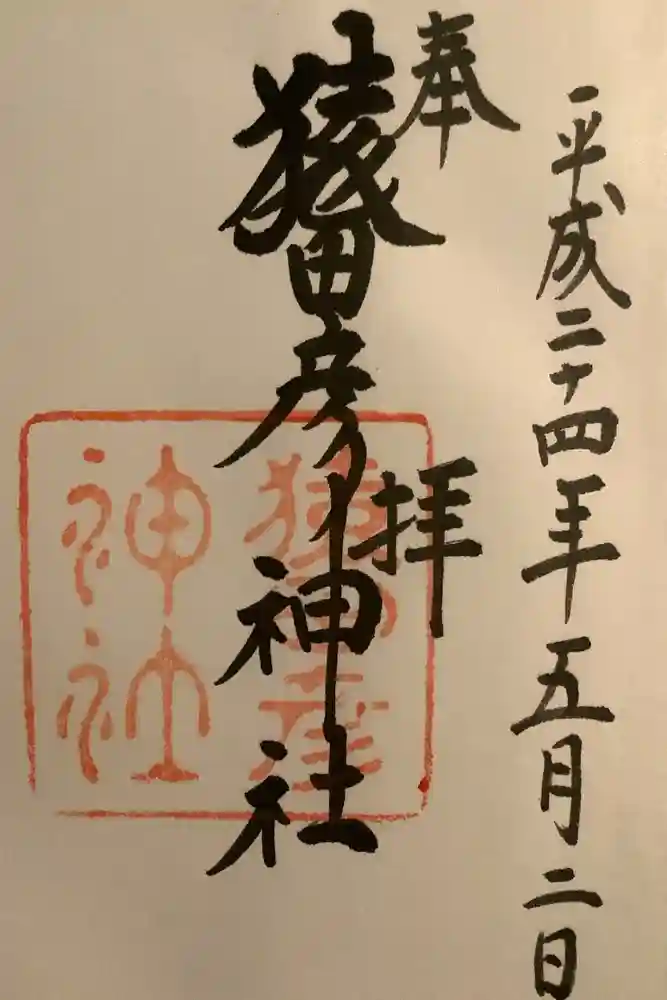 平成二十四年五月二日
奉拝
猿田彦神社
神社